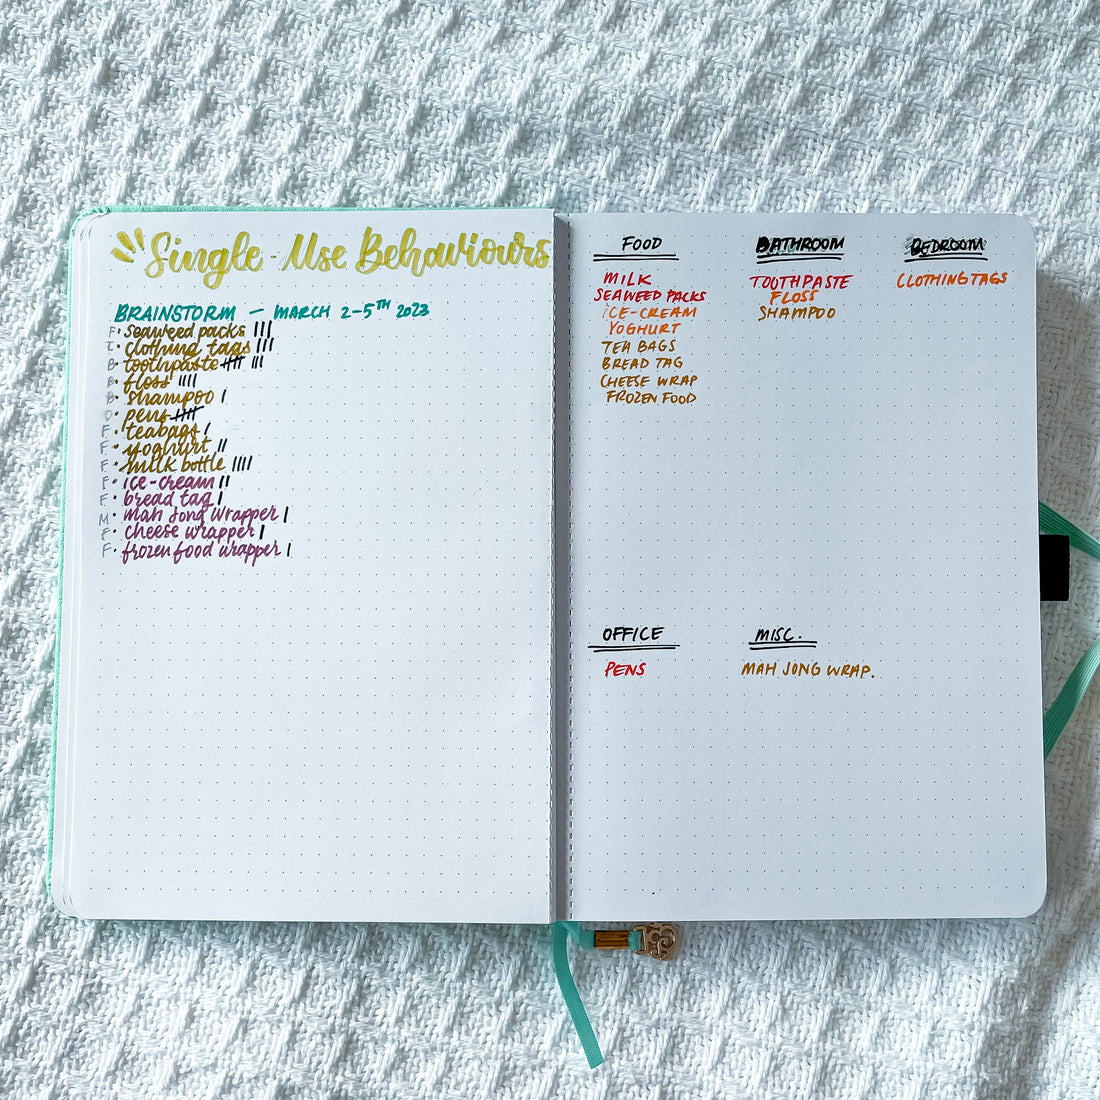 Single-Use Behaviours
BRAINSTORM — MARCH 2-5TH 2023
F • seaweed packs |||
C • clothing tags |||
B • toothpaste 卌 |||
B • floss ||||
B • shampoo |
O • pens 卌
F • teabags |
F • yoghurt ||
F • milk bottle ||||
F • ice-cream ||
F • bread tag |
M • mah jong wrapper |
F • cheese wrapper |
F • frozen food wrapper |
FOOD
MILK
SEAWEED PACKS
ICE-CREAM
YOGHURT
TEA BAGS
BREAD TAG
CHEESE WRAP
FROZEN FOOD
BATHROOM
TOOTHPASTE
FLOSS
SHAMPOO
BEDROOM
CLOTHING TAGS
OFFICE
PENS
MISC.
MAH JONG WRAP.